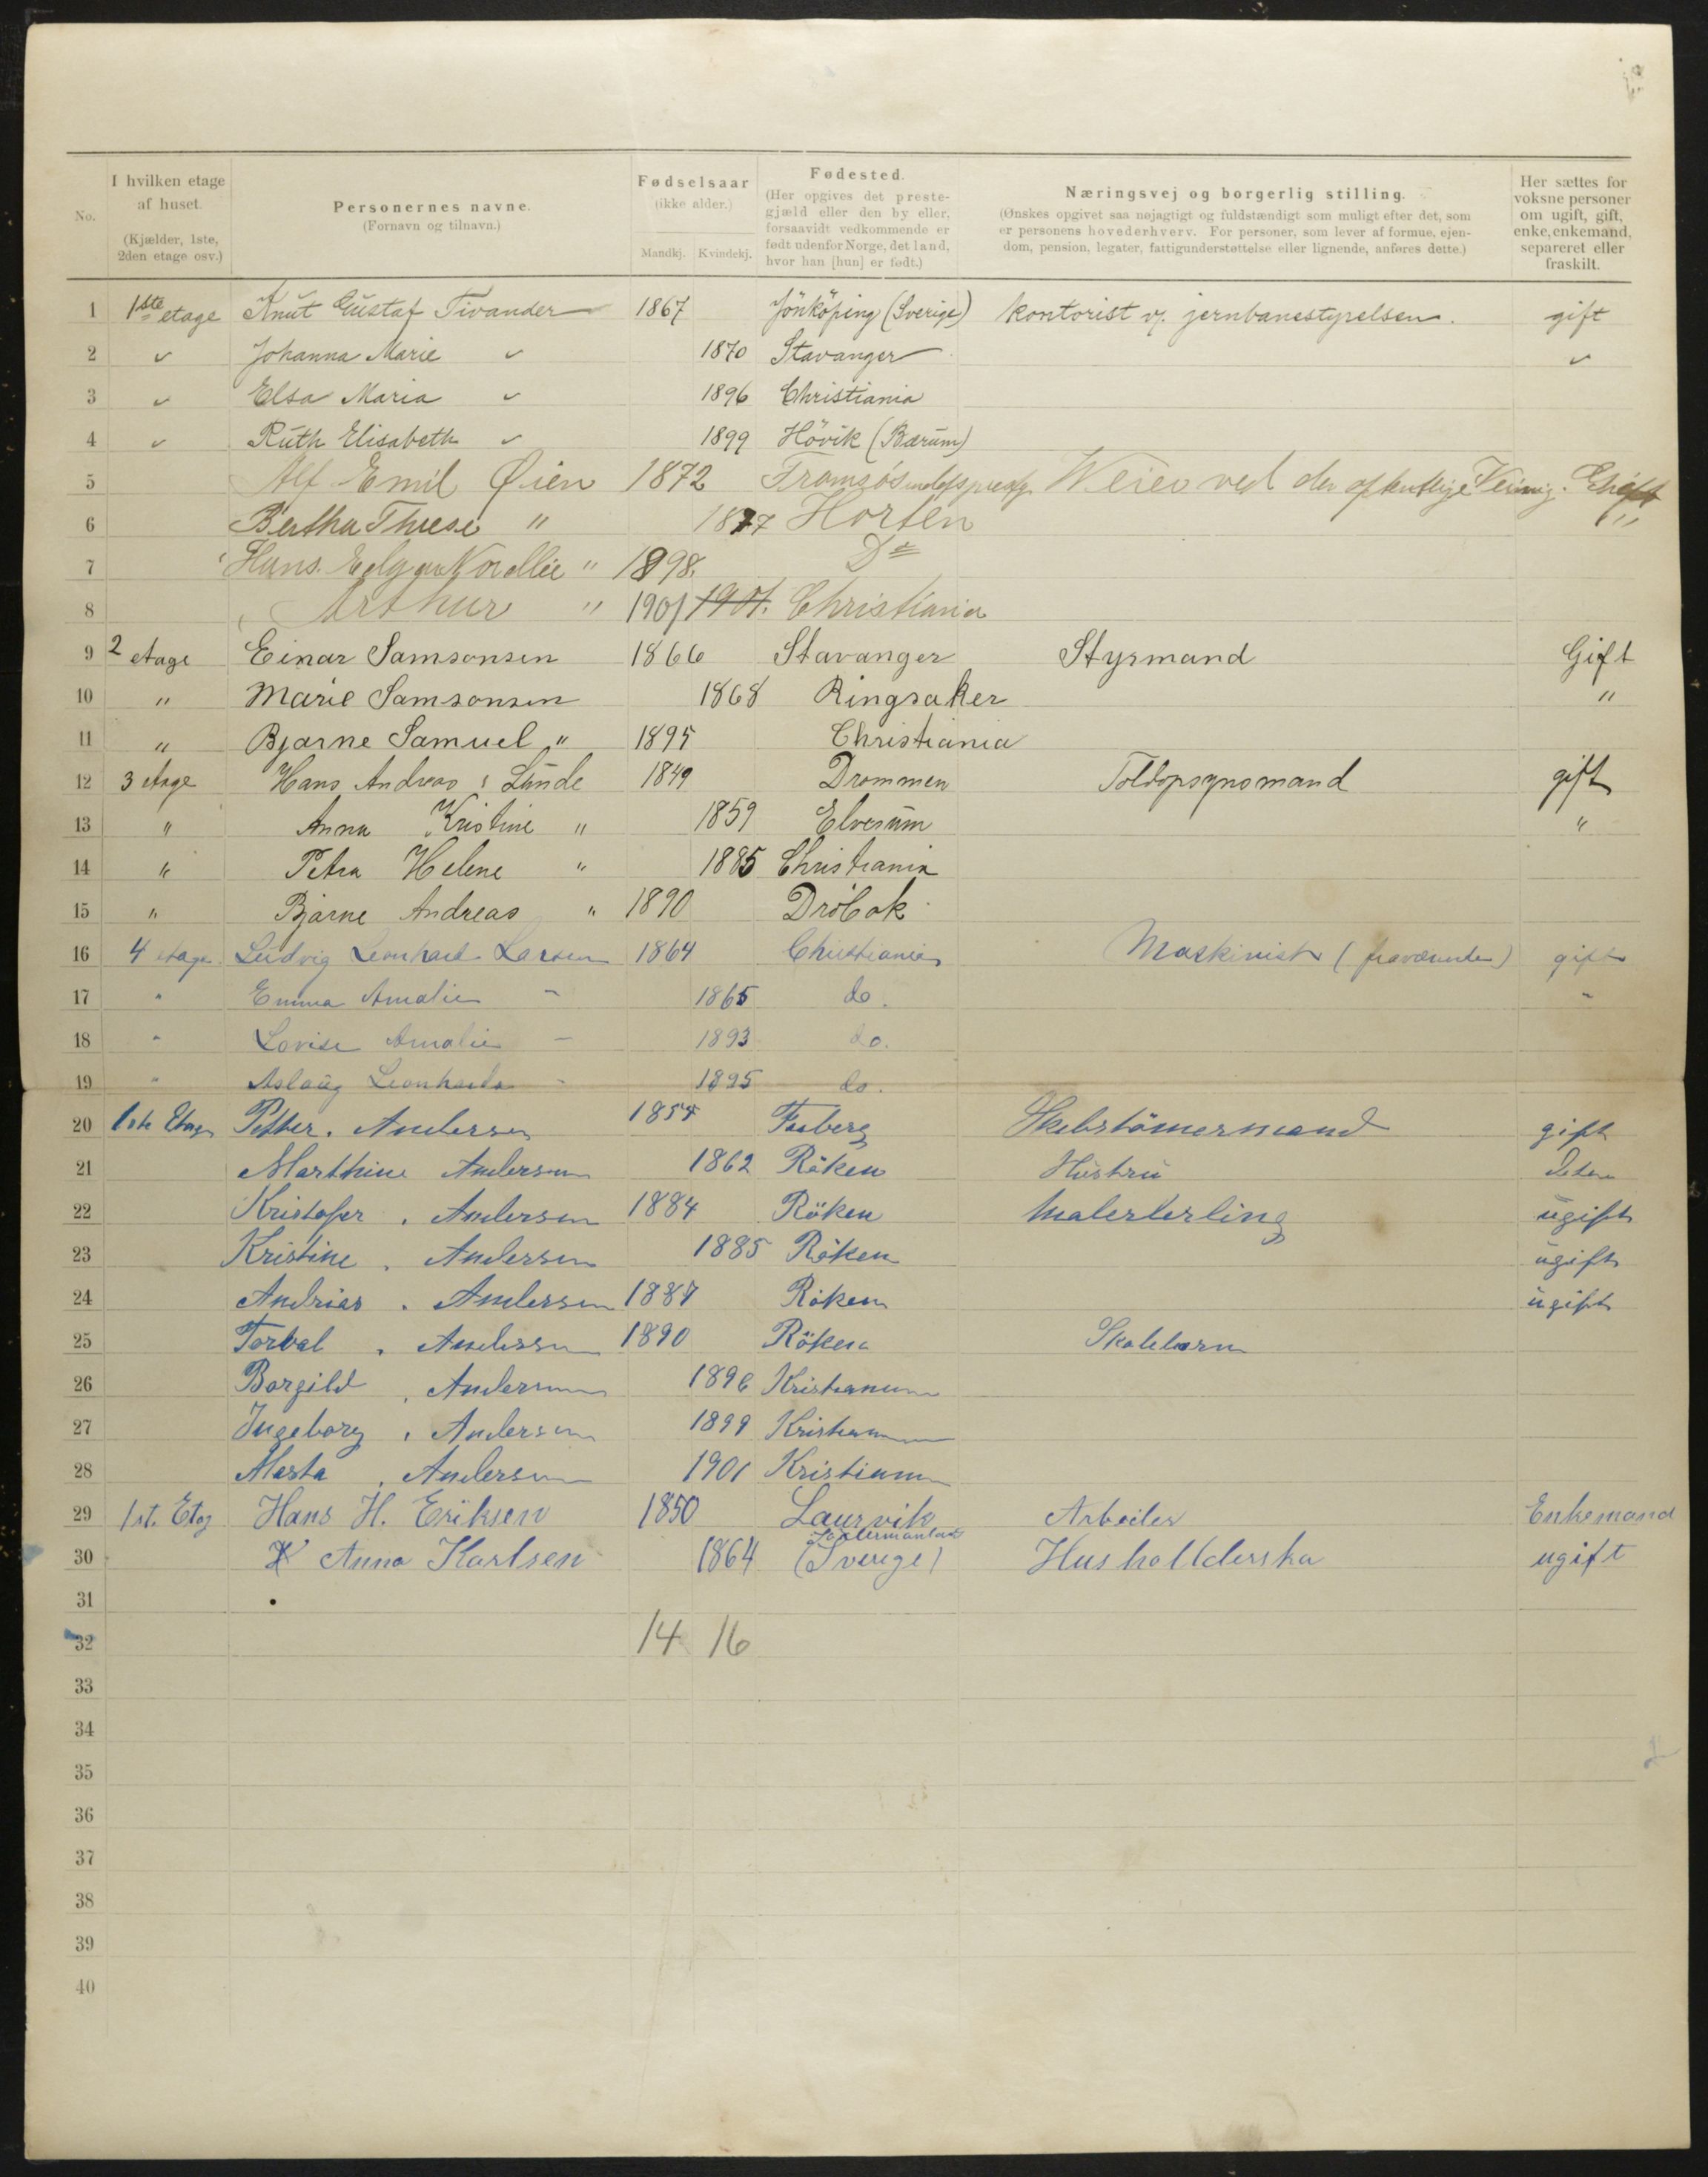 No. I hvilken etage af huset. (Kjælder, 1ste, 2den etage osv.) Personernes navne. (Fornavn og tilnavn.) Fødselsaar (ikke alder.) Mandkj. Kvindekj. Fødested. (Her opgives det prestegjæld eller den by eller, forsaavidt vedkommende er født udenfor Norge, det land, hvor han [hun] er født.) Næringsvej og borgerlig stilling. (Ønskes opgivet saa nøjagtigt og fuldstændigt som muligt efter det, som er personens hovederhverv. For personer, som lever af formue, ejendom, pension, legater, fattigunderstøttelse eller lignende, anføres dette.) Her sættes for voksne personer om ugift, gift, enke, enkemand, separeret eller fraskilt.
1 1ste etage Knut Gustaf Tivander 1867 Jönköping (Sverige) kontorist v. jernbanestyrelsen. gift
2 " Johanna Marie " 1870 Stavanger "
3 " Elsa Maria " 1896 Christiania
4 " Ruth Elisabeth " 1899 Hövik (Bærum)
5 Alf Emil Øien 1872 Weier ved den offentlige
6 Bertha Threse " 1877 Horten "
7 Hans. " 1898. Do
8 Arthur " 1901 1901. Christiania
9 2 etage Einar Samsonsen 1866 Stavanger Styrmand Gift
10 " Marie Samsonsen 1868 Ringsaker "
11 " Bjarne Samuel " 1895 Christiania
12 3 etage Hans Andreas Lunde 1849 Drammen Toldopsynsmand gift
13 " Anna Kristine " 1859 Elverum "
14 " Petra Helene " 1885 Christiania
15 " Bjarne Andreas " 1890 Dröbak
16 4 etage Ludvig Leonhard Larsen 1864 Christiania Maskinist (fraværende) gift
17 " Emma Amalie " 1865 do. "
18 " Lovise Amalie " 1893 do.
19 " Aslaug Leonharda " 1895 do.
20 1ste Etage Petter. Andersen 1854 Faaberg Skibstömermand gift
21 Marthine Andersen 1862 Röken Hustru
22 Kristofer. Andersen 1884 Röken Malerlerling ugift
23 Kristine. Andersen 1885 Röken ugift
24 Andrias. Andersen 1887 Röken ugift
25 Torval. Andersen 1890 Röken Skolebarn
26 Borgild. Andersen 1896 Kristiania
27 Ingeborg. Andersen 1899 Kristiania
28 Marta. Andersen 1901 Kristiania
29 1st. Etag Hans H. Eriksen 1850 Laurvik Arbeider Enkemand
30 X Anna Karlsen 1864 (Sverige) Husholderska ugift
31
32 14 16
33
34
35
36
37
38
39
40